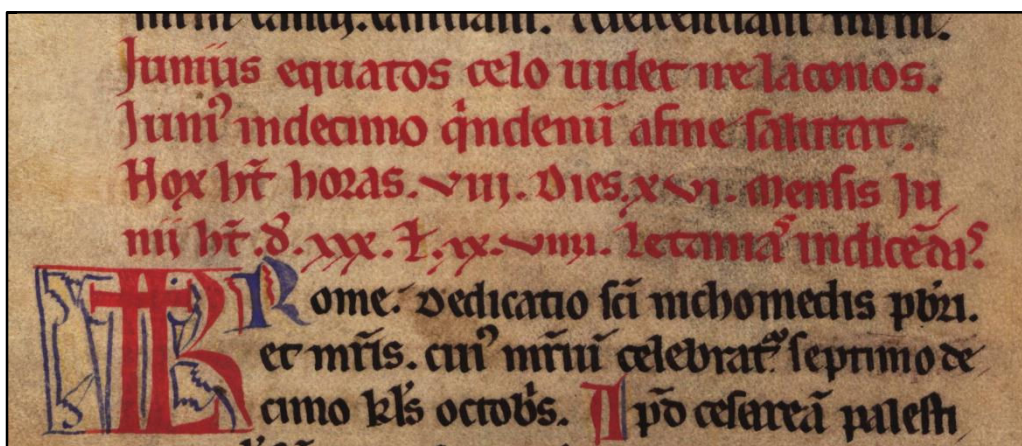 Junius equatos celo uidet ire laconos.
Juni᷒ indecimo q̇ndenū afine salutat.
Nox hꝉt horas. viii. Dies. xvi. Mensis Ju
nii hꝉt. d̄. xxx. ł. xx. viiii.
Rome. Dedicatio sc̄i nichomedis pb̄ri.
et mr̄is. cui᷒ mr̄iū celebrat᷑ septimo de
cimo kl̄s octob̄s. Apđ cesareā palesti